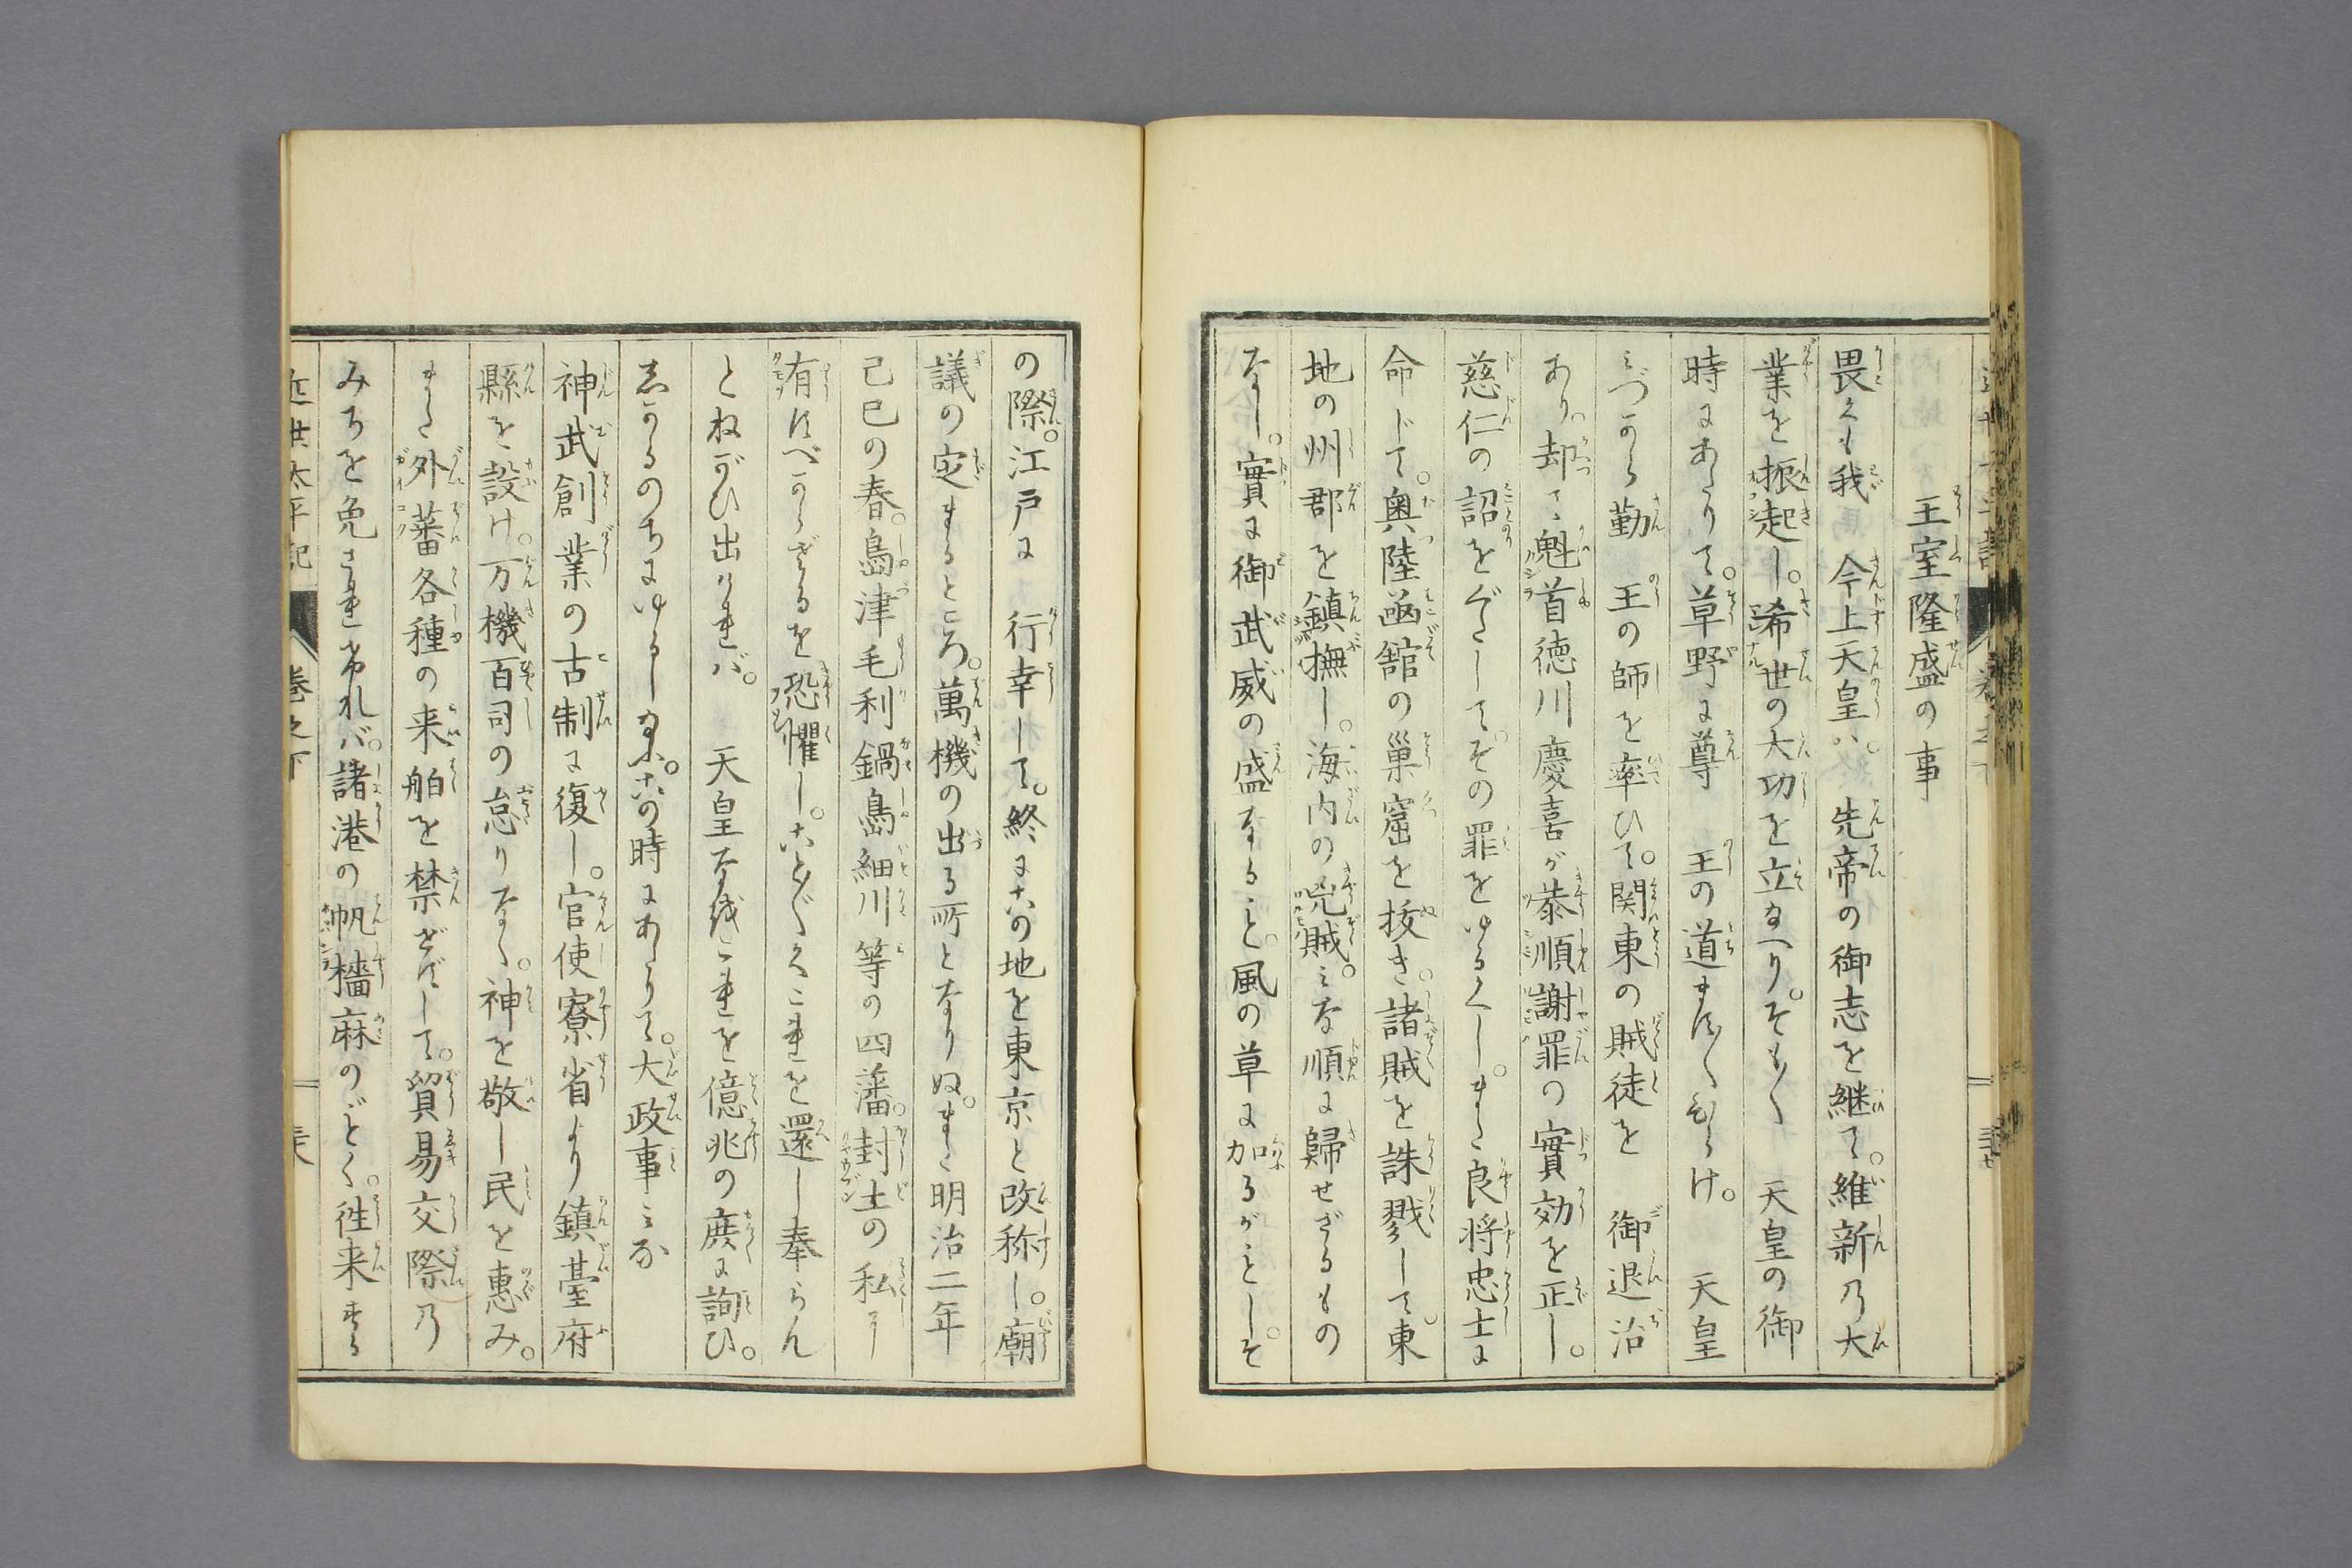 王室隆盛の事
畏くも我　今上天皇ハ。　先帝の御志を継て。維新乃大
業を振起し。希世の大功を立玉へり。そも〱　天皇の御
時にあたりて。草野に尊　王の道まさしくひらけ。　天皇
みづから勤　王の師を率ひて。関東の賊徒を　御退治
あり。却て魁首徳川慶喜が恭順謝罪の實効を正し。
慈仁の詔をくだしてその罪をゆるべし。また良将忠士に
命じて。奥陸凾館の巣窟を抜き。諸賊を誅戮して。東
地の州郡を鎮撫し。海内の兇賊。みな順に歸せざるもの
なし。實に御武威の盛なること。風の草に加るがごとし。そ
の際。江戸に　行幸して。終にこの地を東京と改称し。廟
議の定まるところ。萬機の出る所となりぬ。また明治二年
己巳の春。島津毛利鍋島細川等の四藩。封土の私に
有すべからざるを恐懼し。こと〲くこれを還し奉らん
とねがひ出けれバ。　天皇なほこれを億兆の庶に詢ひ。
しかるのちにゆるし玉ふ。この時にあたりて。大政事みな
神武創業の古制に復し。官使寮省より鎮臺府
縣を設け。万機百司の怠りなく。神を敬し民を惠み。
また外蕃各種の来舶を禁ぜずして。貿易交際乃
みちを免され玉へれバ。諸港の帆檣麻のごとく。徃来する
近世太平記　巻之下　三十八